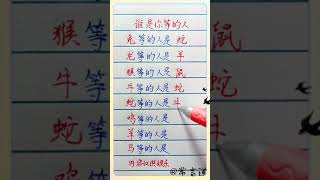 谁是你等的人
兔等的人是 蛇
龙等的人是 羊
猴等的人是 鼠
牛等的人是 蛇
蛇等的人是 牛
鸡等的人是
羊等的人是
马等的人是
内容仅供娱乐